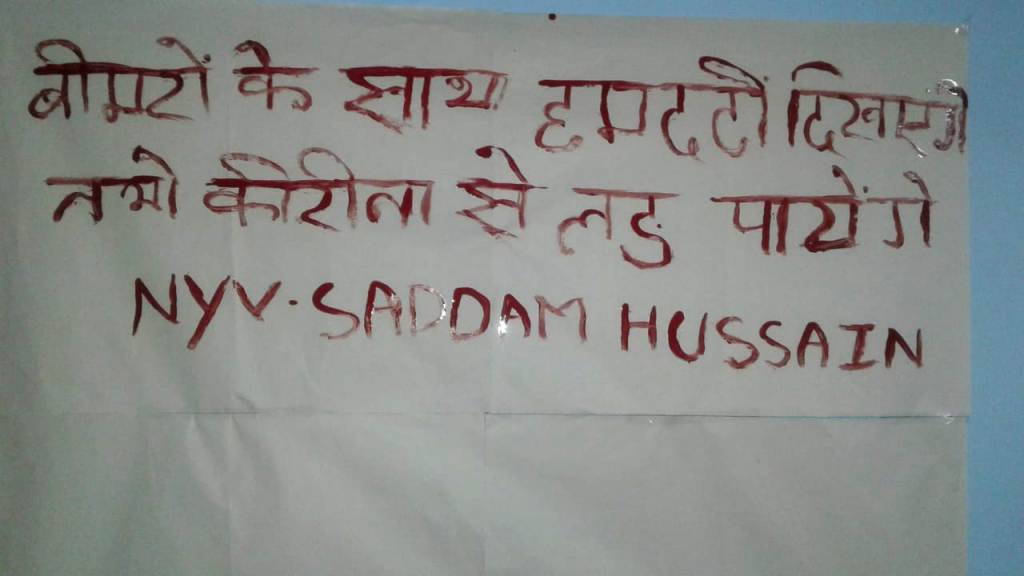 बीमारों के साथ हमदर्दी दिखाएंगे
तभी कोरोना से लड़ पायेंगे
NYV. SADDAM HUSSAIN